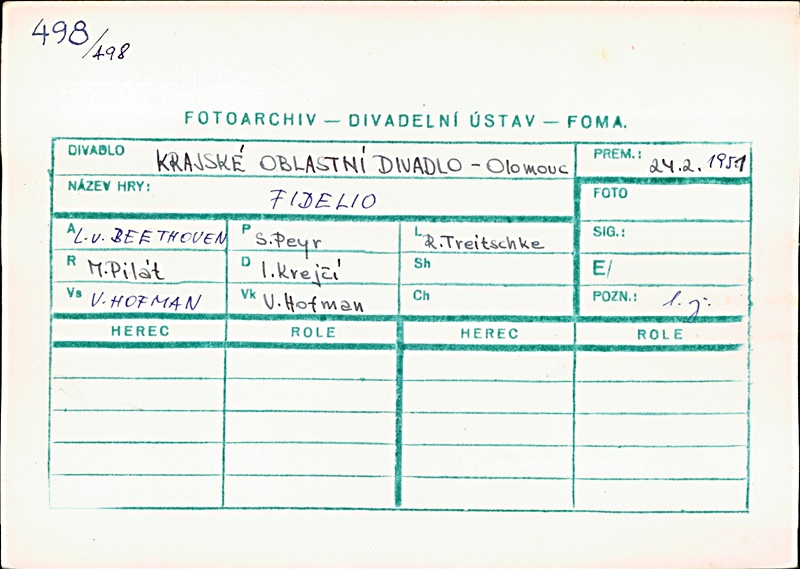 498/498
FOTOARCHIV — DIVADELNÍ ÚSTAV — FOMA.
DIVADLO KRAJSKÉ OBLASTNÍ DIVADLO - Olomouc PREM.: 24.2.1951
NÁZEV HRY: FIDELIO FOTO
A L.v.BEETHOVEN P S.Peyr L R.Treitschke SIG.:
R M.Pilát D I.Krejčí Sh E/
Vs V.HOFMAN Vk V.Hofman Ch POZN.: 1.j.
HEREC ROLE HEREC ROLE